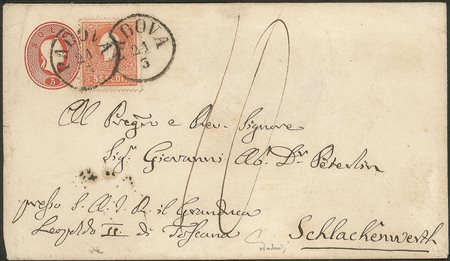 SOLDI
5
PADOVA
21
3
5 SOLDI
PADOVA
21
3
10
Al Pregmo e Rev. Signore
Sigr Giovanni Ab. Dr Peterlin
presso S. A. I. R. il Granduca
Leopoldo II. di Toscana
Schlackenwerth